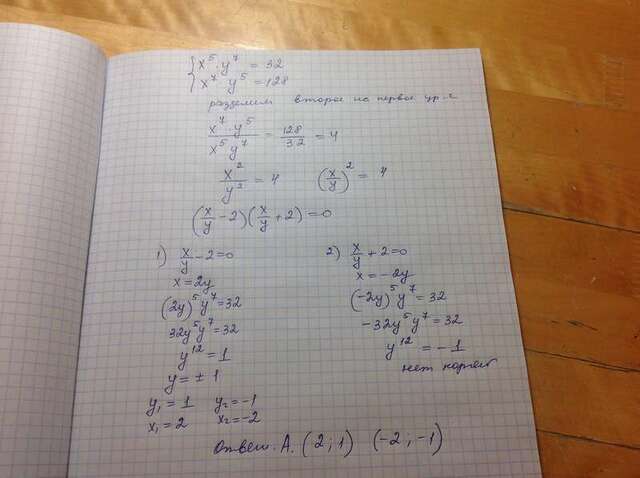 { x⁵ · y⁷ = 32
x⁷ y⁵ = 128
разделим второе на первое ур-е
x⁷ · y⁵ / x⁵ y⁷ = 128 / 32 = 4
x² / y² = 4 (x/y)² = 4
(x/y - 2)(x/y + 2) = 0
1) x/y - 2 = 0
x = 2y
(2y)⁵ y⁷ = 32
32y⁵y⁷ = 32
y¹² = 1
y = ± 1
y₁ = 1 y₂ = -1
x₁ = 2 x₂ = -2
2) x/y + 2 = 0
x = -2y
(-2y)⁵ y⁷ = 32
-32y⁵y⁷ = 32
y¹² = -1
нет корней
Ответ: А. (2 ; 1) (-2 ; -1)